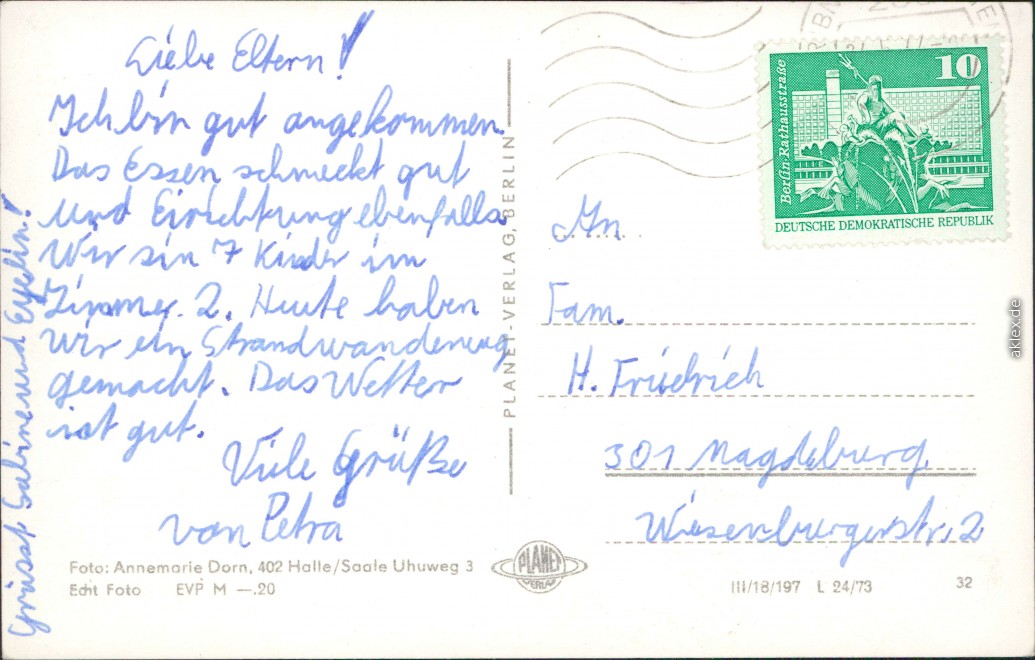 Liebe Eltern!
Ich bin gut angekommen.
Das Essen schmeckt gut
und Eirichtung ebenfalls.
Wir sin 7 Kinder im
Zimmer 2. Heute haben
wir ein Strandwanderung
gemacht. Das Wetter
ist gut.
Viele Grüße
von Petra
Grüsst Sabine und Evelin!
Foto: Annemarie Dorn, 402 Halle/Saale Uhuweg 3
Echt Foto EVP M —.20
PLANET-VERLAG, BERLIN
PLANET
VERLAG
10
Berlin-Rathausstraße
DEUTSCHE DEMOKRATISCHE REPUBLIK
An
Fam.
H. Friedrich
301 Magdeburg
Wiesenburgerstr. 2
III/18/197 L 24/73
32
aklex.de